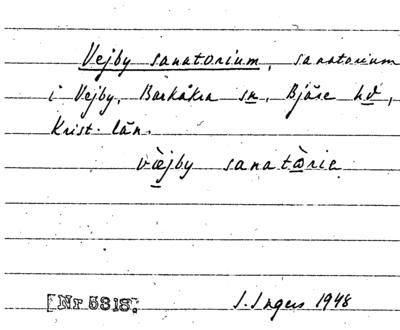 Vejby sanatorium, sanatorium
i Vejby, Barkåkra sn, Bjäre hd,
Krist. län.
væ̀jby sanatὼrie
[Nr 5818]
I. Ingers 1948